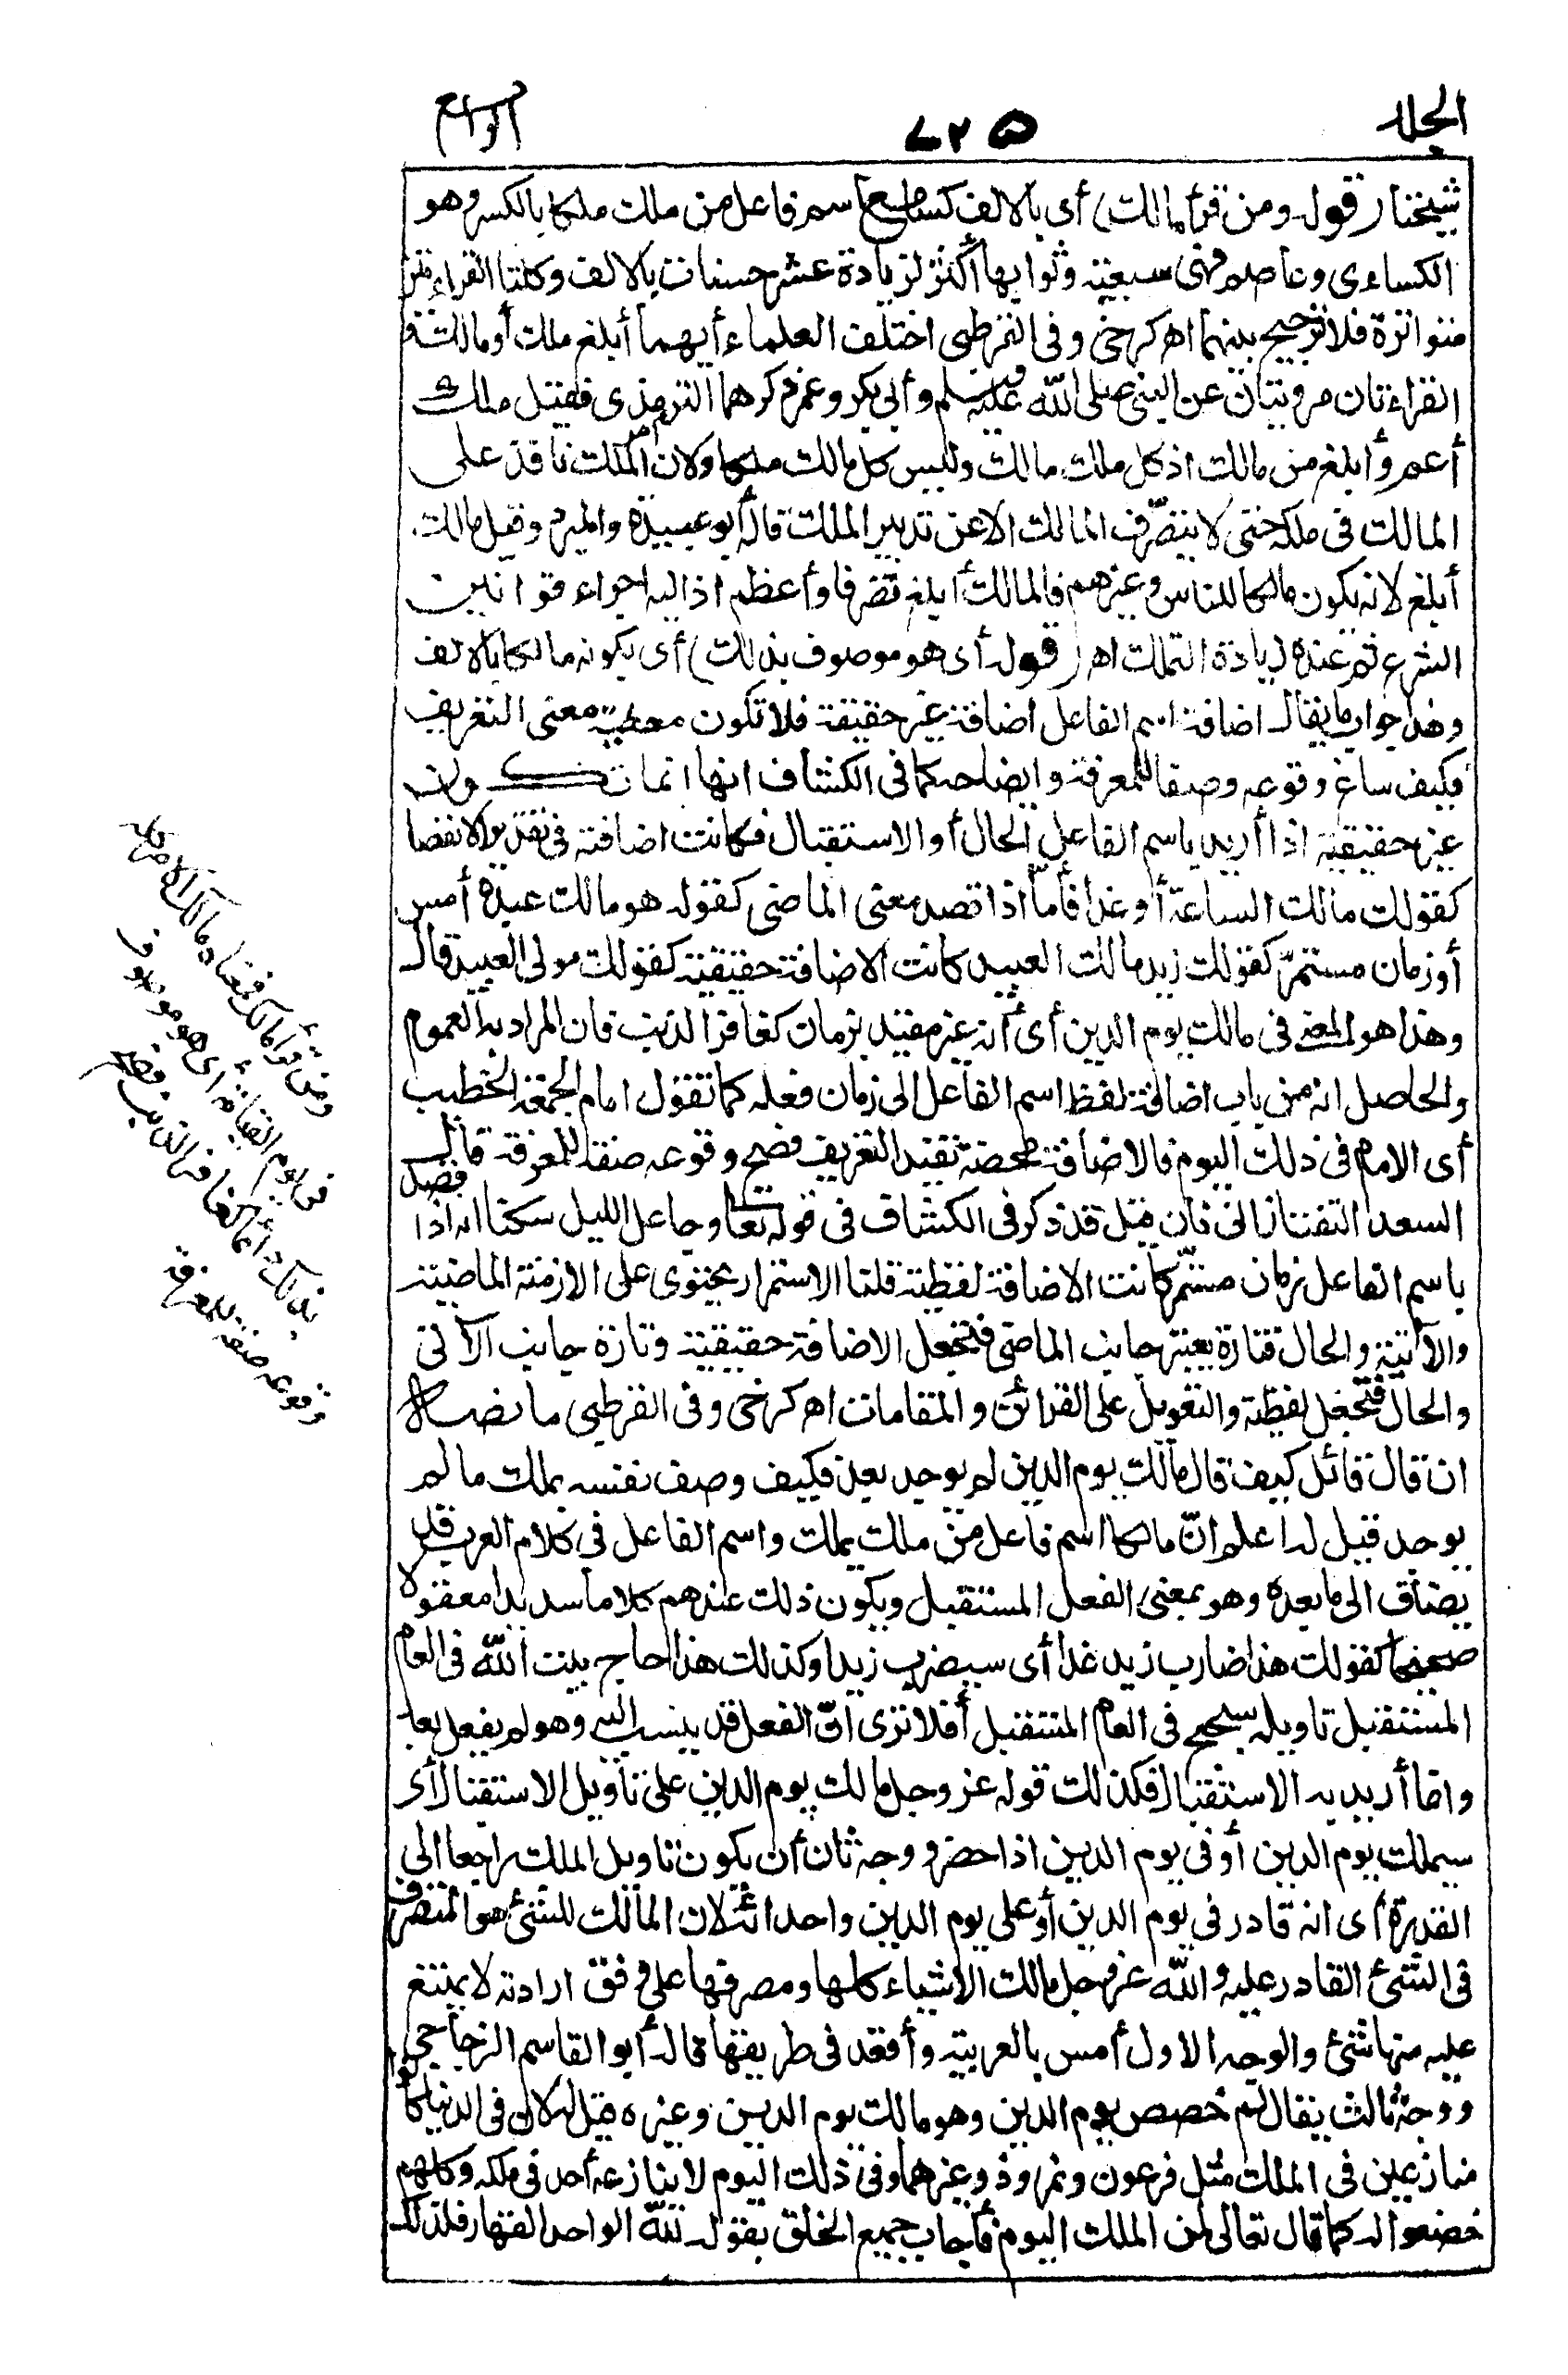 الجلد
٧٢٥
الرابع
شيخنا (قوله ومن قرأ مالك) أى بالالف كسامع اسم فاعل من ملك ملكا بالكسر وهو
الكساءى وعاصم فهى سبعية وثوابها أكثر لزيادة عشر حسنات بالالف وكلتا القراءتين
متواترة فلا ترجيح بينهما اهـ كرخى وفى القرطبى اختلف العلماء أيهما أبلغ ملك أو مالك و
القراءتان مرويتان عن النبى صلى الله عليه وسلم وأبى بكر وعمر ذكرهما الترمذى فقيل ملك
أعم وأبلغ من مالك اذ كل ملك مالك وليس كل مالك ملكا ولان أمر الملك نافذ على
المالك فى ملكه حتى لا يتصرّف المالك الا عن تدبير الملك قاله أبو عبيدة والمبرد وقيل مالك
أبلغ لانه يكون مالكا للناس وغيرهم فالمالك أبلغ تصرفا وأعظم اذ اليه اجراء قوانين
الشرع ثم عنده زيادة التملك اهـ (قوله أى هو موصوف بذلك) أى بكونه مالكا بالالف
وهذا جواب ما يقال اضافة اسم الفاعل اضافة غير حقيقة فلا تكون معطية معنى التعريف
فكيف ساغ وقوعه وصفا للمعرفة وايضاحه كما فى الكشاف انها انما تكون
غير حقيقية اذا أريد باسم الفاعل الحال أو الاستقبال فكانت اضافته فى تقدير الانفصال
كقولك مالك الساعة أو غدا فأما اذا قصد معنى الماضى كقوله هو مالك عبده أمس
أو زمان مستمرّ كقولك زيد مالك العبيد كانت الاضافة حقيقية كقولك مولى العبيد قال
وهذا هو المعنى فى مالك يوم الدين أى أنه غير مقيد بزمان كغافر الذنب فان المراد به العموم
والحاصل انه من باب اضافة لفظ اسم الفاعل الى زمان فعله كما تقول امام الجمعة الخطيب
أى الامام فى ذلك اليوم فالاضافة محضة تفيد التعريف فصح وقوعه صفة للمعرفة قال
السعد التفتازانى فان قيل قد ذكر فى الكشاف فى قوله تعا وجاعل الليل سكنا انه اذا قصد
باسم الفاعل زمان مستمرّ كانت الاضافة لفظية قلنا الاستمرار يحتوى على الازمنة الماضية
والآتية والحال فتارة يعتبر جانب الماضى فتجعل الاضافة حقيقية وتارة جانب الآتى
والحال فتجعل لفظية والتعويل على القرائن والمقامات اهـ كرخى وفى القرطبى ما نصه
ان قال قائل كيف قال مالك يوم الدين لم يوجد بعد فكيف وصف نفسه بملك ما لم
يوجد قيل له اعلم انّ مالكا اسم فاعل من ملك يملك واسم الفاعل فى كلام العرب قد
يضاف الى ما بعده وهو بمعنى الفعل المستقبل ويكون ذلك عندهم كلاما سديدا معقولا
صحيحا كقولك هذا ضارب زيد غدا أى سيضرب زيدا وكذلك هذا حاج بيت الله فى العام
المستقبل تاويله سيحج فى العام المستقبل أفلا ترى انّ الفعل قد ينسب اليه وهو لم يفعل بعد
وانما أريد به الاستقبال فكذلك قوله عز وجل مالك يوم الدين على تاويل الاستقبال أى
سيملك يوم الدين أو فى يوم الدين اذا حضر و وجه ثان أن يكون تاويل الملك راجعا الى
القدرة أى انه قادر فى يوم الدين أو على يوم الدين واحداثه لان المالك للشئ هو المتصرف
فى الشئ القادر عليه والله عز وجل مالك الاشياء كلها ومصرفها على وفق ارادته لا يمتنع
عليه منها شئ والوجه الاول أمس بالعربية وأقعد فى طريقها قاله أبو القاسم الزجاجى
ووجه ثالث يقال لم خصص يوم الدين وهو مالك يوم الدين وغيره قيل له لان فى الدنيا كانوا
منازعين فى الملك مثل فرعون ونمروذ وغيرهما وفى ذلك اليوم لا ينازعه أحد فى ملكه وكلهم
خضعوا له كما قال تعالى لمن الملك اليوم فأجاب جميع الخلق بقوله لله الواحد القهار فلذلك
ومن قرأ مالك فمعناه مالك الأمر كله
فى يوم القيامة أى هو موصوف
بذلك دائما كغافر الذنب فصح
وقوعه صفة للمعرفة